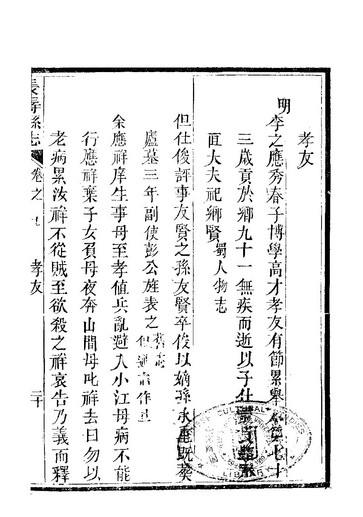 孝友
明
李之應秀春子博學高才孝友有節累舉不第七十
三歲貢於鄉九十一無疾而逝以子仕
直大夫祀鄉賢蜀人物志
但仕俊評事友賢之孫友賢卒俊以嫡孫承重既葵
廬墓三年副使彭公旌表之
余應祥庠生事母至孝值兵亂避入小江母病不能
行應祥棄子女負母夜奔山間母叱祥去曰勿以
老病累汝祥不從賊至欲殺之祥哀告乃義而釋
長壽縣志
卷之九
孝友
二十
CULTURAL
LIBRARY